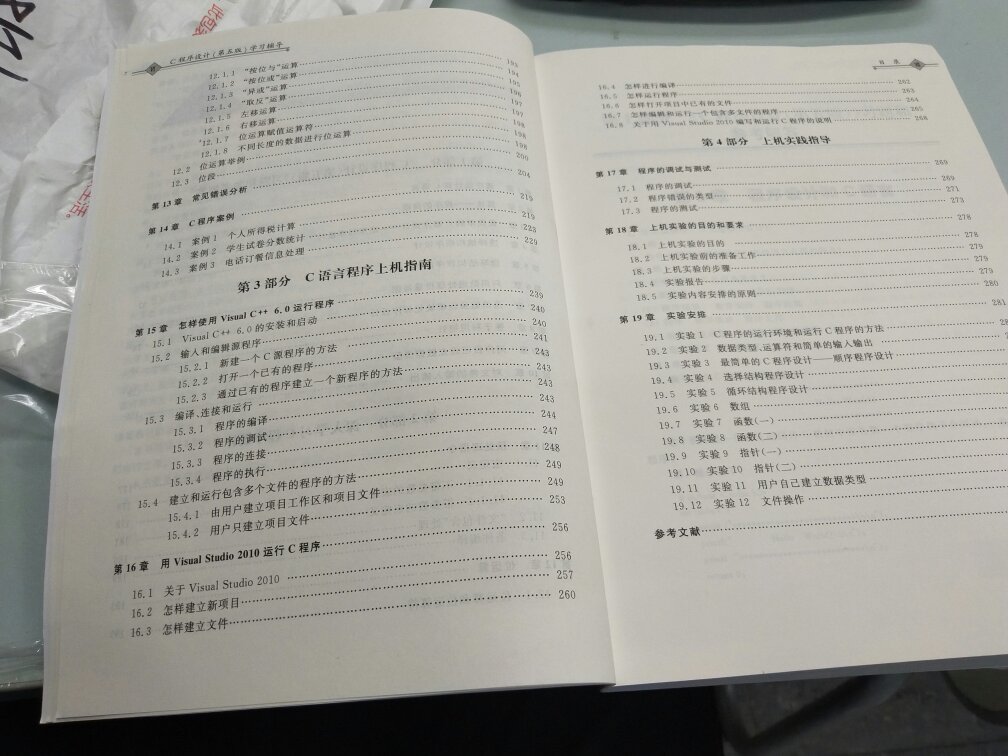 C程序设计(第五版)学习辅导
12.1.1 "按位与"运算
12.1.2 "按位或"运算 193
12.1.3 "异或"运算 194
12.1.4 "取反"运算 195
12.1.5 左移运算 196
12.1.6 右移运算 197
12.1.7 位运算赋值运算符 197
12.1.8 不同长度的数据进行位运算 198
12.2 位运算举例 198
12.3 位段 200
第13章 常见错误分析 204
第14章 C程序案例 219
14.1 案例1 个人所得税计算 219
14.2 案例2 学生试卷分数统计 223
14.3 案例3 电话订餐信息处理 229
第3部分 C语言程序上机指南
第15章 怎样使用Visual C++ 6.0运行程序
15.1 Visual C++ 6.0的安装和启动 239
15.2 输入和编辑源程序 240
15.2.1 新建一个C源程序的方法 240
15.2.2 打开一个已有的程序 241
15.2.3 通过已有的程序建立一个新程序的方法 243
15.3 编译、连接和运行 243
15.3.1 程序的编译 243
15.3.2 程序的调试 244
15.3.3 程序的连接 247
15.3.4 程序的执行 248
15.4 建立和运行包含多个文件的程序的方法 249
15.4.1 由用户建立项目工作区和项目文件 249
15.4.2 用户只建立项目文件 253
第16章 用Visual Studio 2010运行C程序 256
16.1 关于Visual Studio 2010 256
16.2 怎样建立新项目 257
16.3 怎样建立文件 260
目录
16.4 怎样进行编译 262
16.5 怎样运行程序 263
16.6 怎样打开项目中已有的文件 264
16.7 怎样编辑和运行一个包含多文件的程序 265
16.8 关于用Visual Studio 2010编写和运行C程序的说明 268
第4部分 上机实践指导
第17章 程序的调试与测试 269
17.1 程序的调试 269
17.2 程序错误的类型 271
17.3 程序的测试 273
第18章 上机实验的目的和要求 278
18.1 上机实验的目的 278
18.2 上机实验前的准备工作
18.3 上机实验的步骤 279
18.4 实验报告 279
18.5 实验内容安排的原则 280
第19章 实验安排 281
19.1 实验1 C程序的运行环境和运行C程序的方法
19.2 实验2 数据类型、运算符和简单的输入输出
19.3 实验3 最简单的C程序设计——顺序程序设计
19.4 实验4 选择结构程序设计
19.5 实验5 循环结构程序设计
19.6 实验6 数组
19.7 实验7 函数(一)
19.8 实验8 函数(二)
19.9 实验9 指针(一)
19.10 实验10 指针(二)
19.11 实验11 用户自己建立数据类型
19.12 实验12 文件操作
参考文献